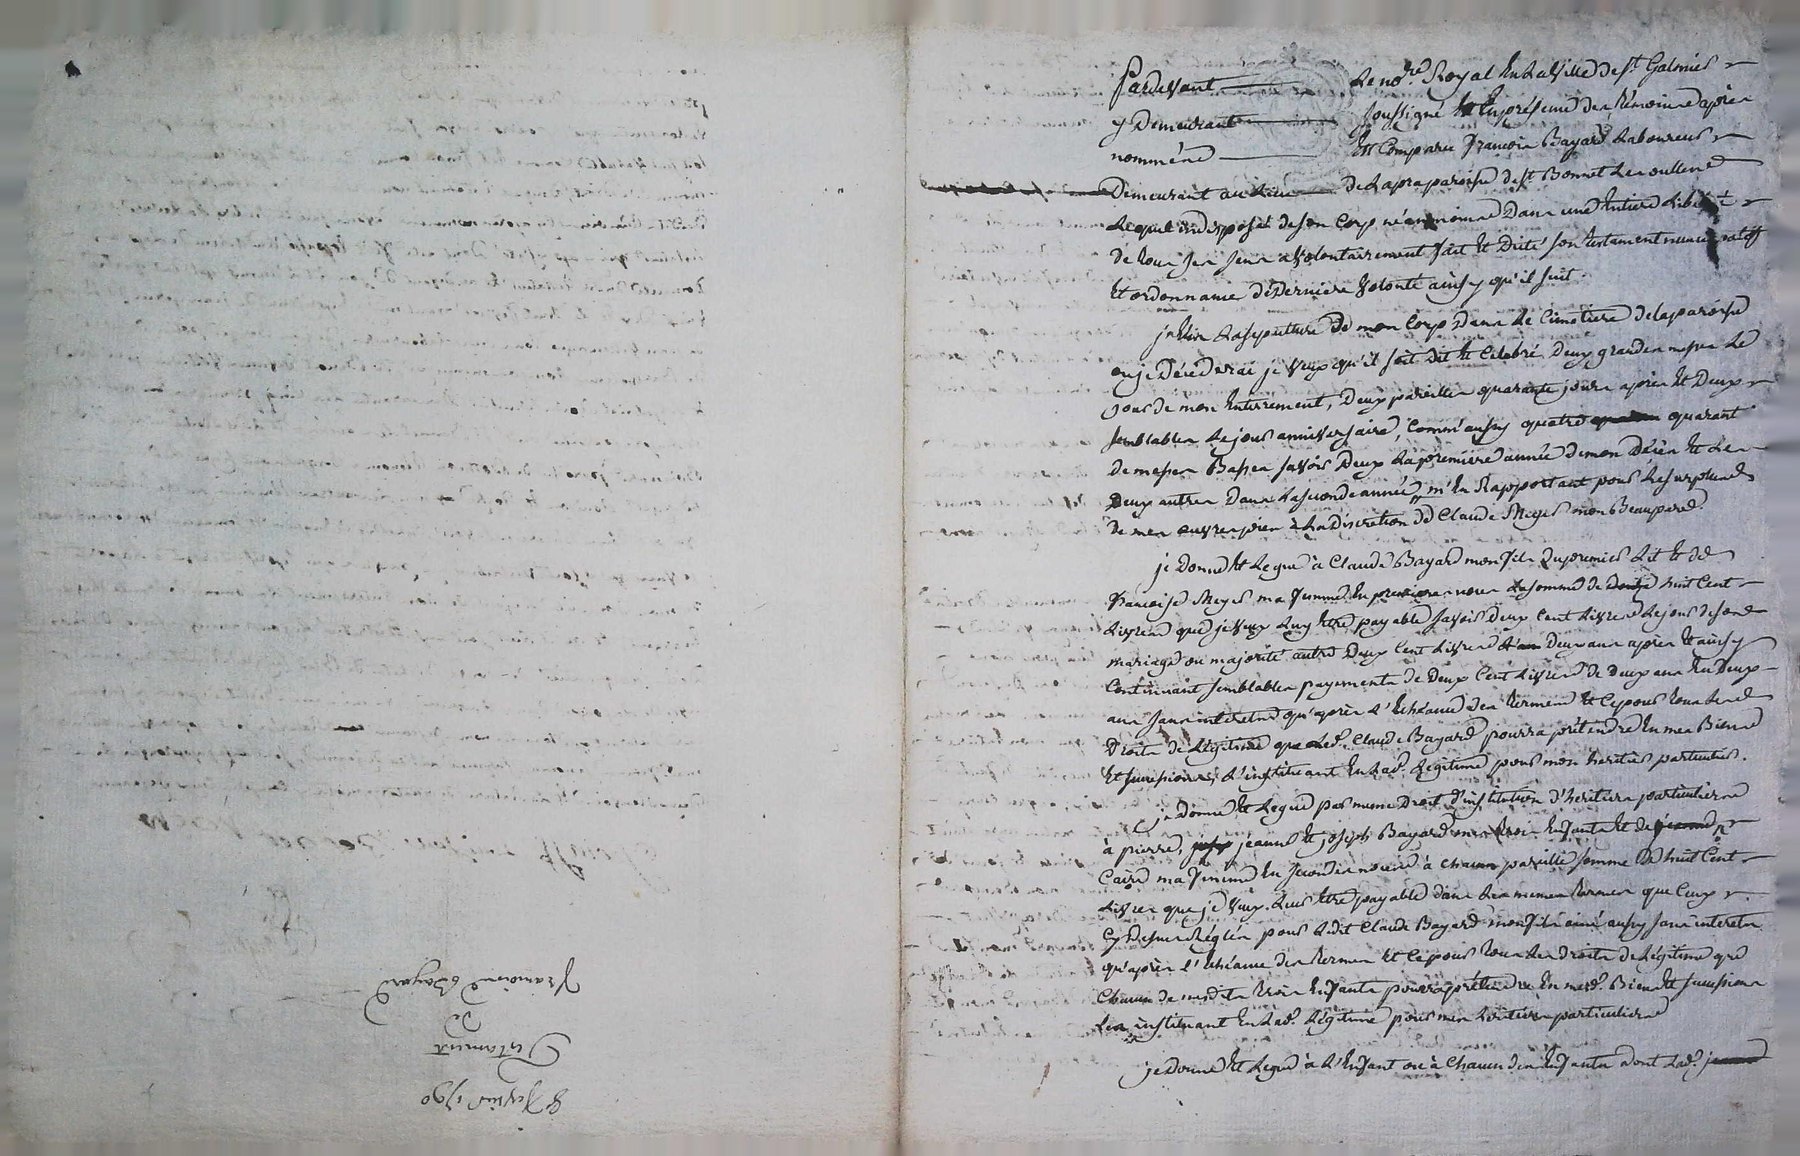 Pardevant Le no.re Royal En La Ville De St Galmier
y Demeurant soussigné Et En présence des Témoins après
nommés Est Comparu François Bayard Laboureur
Demeurant au Lieu de La paroisse de St Bonnet Les oulles
Lequel indisposé de son Corp néanmoins Dans une Entière Liberté
de tous ses sens a Volontairement fait Et Dicté son testament nuncupatif
Et ordonnance de Dernière Volonté ainsy qu'il suit.
je Elis La sépulture de mon Corp Dans Le Cimetiere de la paroisse
ou je Décéderai je Veux qu'il soit dit Et Celebré Deux grandes messes Le
jour de mon Enterrement, Deux pareilles quarante jours après Et Deux
semblables Le jour anniversaire, Comm'aussy quatre quarant
de messes Basses savoir Deux La premiere année de mon Décès Et Les
Deux autres Dans La seconde année, m'En Rapportant pour Le surplus
de mes œuvres pies à La Discretion de Claude Meyer mon Beaupere.
je Donne Et Legue à Claude Bayard mon fils Du premier Lit Et de
françoise Meyer ma femme En premieres noces La somme de huit Cent
Livres que je Veux Luy Etre payable savoir Deux Cent Livres Le jour de son
mariage ou majorité autre Deux Cent Livres Deux ans après Et ainsy
Continuant semblables payements de Deux Cent Livres de deux ans En Deux
ans sans interets qu'après L'Echéance des termes Et Ce pour tous Les
Droits de Légitime que Led. Claude Bayard pourra prétendre En mes Biens
Et successions, L'instituant En Lad. Légitime pour mon heritier particulier.
je donne Et Legue par même Droit d'institution d'heritiers particuliers
à pierre, jeanne Et joseph Bayard mes trois Enfants Et de
Caire ma femme En secondes noces à Chacun pareille somme de huit Cent
Livres que je Veux Leur Etre payable dans Les mêmes termes que Ceux
Cy Dessus Réglés pour Ledit Claude Bayard mon fils ainé aussy sans interets
qu'après l'Echéance des termes Et Ce pour tous Les droits de Légitime que
Chacun de mesdits trois Enfants pourra prétendre En mesd. Biens Et successions
Les instituant En Lad. Légitime pour mes heritiers particuliers
je donne Et Legue à L'Enfant ou à Chacun des Enfants dont Lad.
8 Janvier 1790
Testament
de
François Bayard